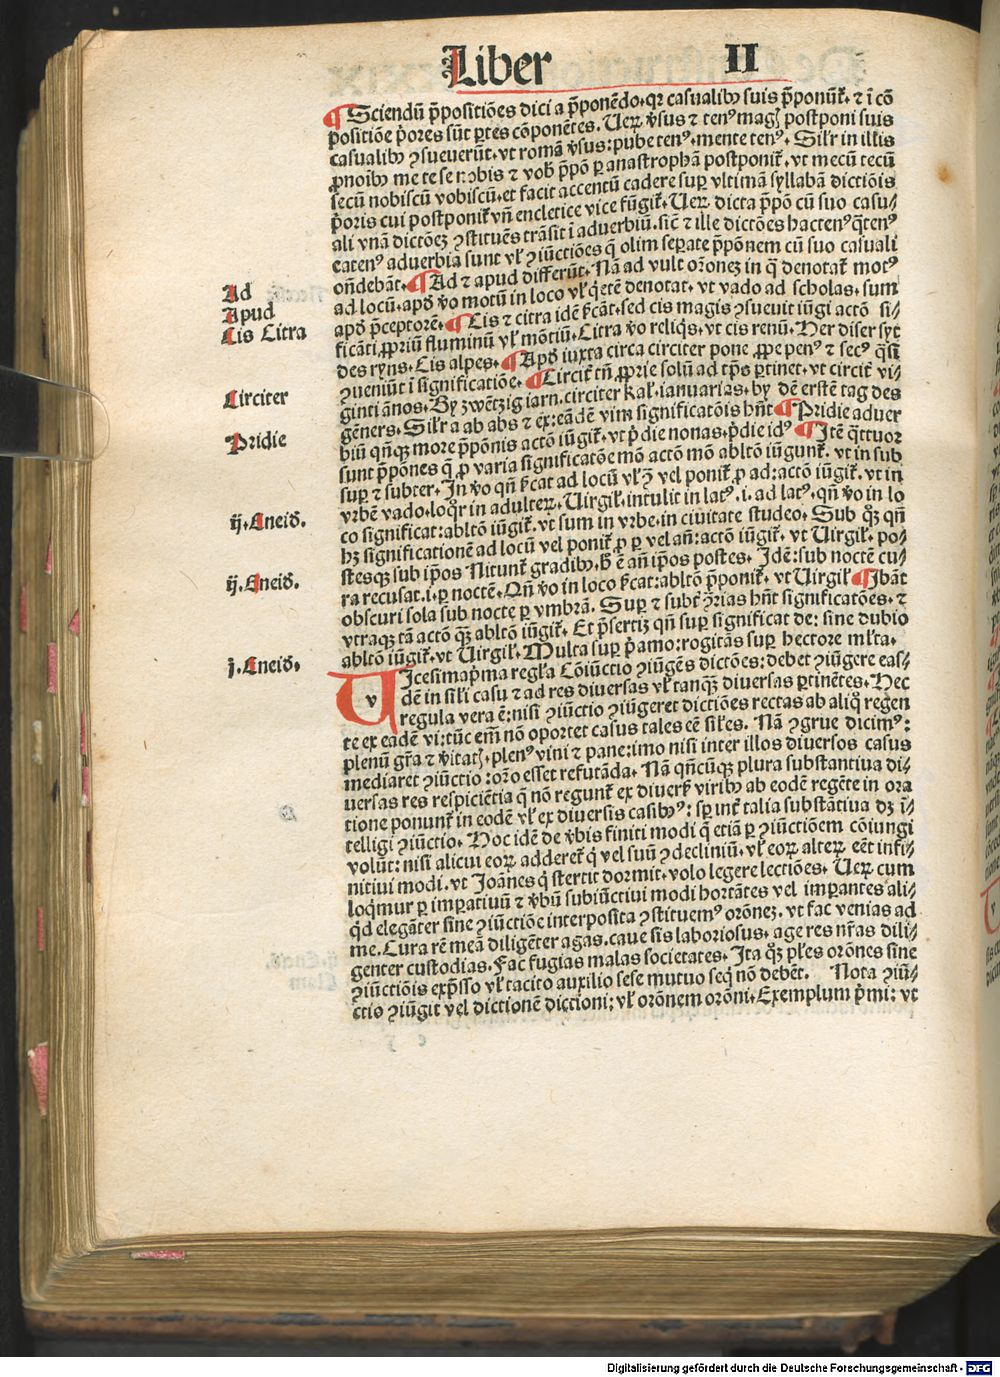 Liber II
¶ Sciendū p̄positiōes dici a p̄ponēdo. qꝛ casualibꝰ suis p̄ponūt᷑. ⁊ ī cō
positiōe p̄ores sūt ꝑtes cōponētes. Ueꝝ v̓sus ⁊ tenꝰ magꝭ postponi suis
casualibꝰ ꝯsueuerūt. vt romā v̓sus: pube tenꝰ. mente tenꝰ. Sil̓r in illis
ꝓnoībꝰ me te se nobis ⁊ vob̓ p̄pō ꝑ anastrophā postponit᷑. vt mecū tecū
secū nobiscū vobiscū. et facit accentū cadere suꝑ vltimā syllabā dictiōis
p̓oris cui postponit᷑ vn̄ encletice vice fūgit᷑. Ueꝝ dicta p̄pō cū suo casu⸗
ali vnā dictōeꝫ ꝯstituēs trāsit ī aduerbiū. sic̄ ⁊ ille dictōes hactenꝰ q̄tenꝰ
eatenꝰ aduerbia sunt vl̓ ꝯiūctiōes q̄ olim seꝑate p̄pōnem cū suo casuali
on̄debāt. ¶ Ad ⁊ apud differūt. Nā ad vult orōneꝫ in q̄ denotat᷑ motꝰ
ad locū. apd̓ v̓o motū in loco vl̓ q̓etē denotat. vt vado ad scholas. sum
apd̓ p̄ceptorē. ¶ Cis ⁊ citra idē s̓cāt. sed cis magis ꝯsueuit iūgi actō si⸗
ficāti ꝓpriū fluminū vl̓ mōtiū. Citra v̓o reliq̓s. vt cis renū. Her diser syt
des ryns. Cis alpes. ¶ Apd̓ iuxta circa circiter pone ꝓpe penꝰ ⁊ secꝰ q̄si
ꝯueniūt ī significatiōe. ¶ Circit᷑ tn̄ ꝓprie solū ad tp̄s ꝑtinet. vt circit᷑ vi⸗
ginti ānos. By zwētzig iarn. circiter kal̓. ianuarias. by dē erstē tag des
gēners. Sil̓r a ab abs ⁊ ex: eādē vim significatōis hn̄t ¶ Pridie aduer
biū qn̄qꝫ more p̄pōnis actō iūgit᷑. vt p̓die nonas. p̓die idꝰ ¶ Itē q̄ttuor
sunt p̄pōnes q̄ ꝓ varia significatōe mō actō mō abltō iūgunt᷑. vt in sub
suꝑ ⁊ subter. In v̓o qn̄ s̓cat ad locū vl̓ ꝯ vel ponit᷑ ꝓ ad: actō iūgit᷑. vt in
vrbē vado. loq̓r in adulteꝝ. Uirgil̓. intulit in latꝰ. i. ad latꝰ. qn̄ v̓o in lo
co significat: abltō iūgit᷑. vt sum in vrbe. in ciuitate studeo. Sub q̊ꝫ qn̄
hꝫ significationē ad locū vel ponit᷑ ꝓ ꝑ vel an̄: actō iūgit᷑. vt Uirgil̓. po⸗
stesqꝫ sub ip̄os Nitunt᷑ gradibꝰ. h̓ ē an̄ ip̄os postes. Idē: sub noctē cu⸗
ra recusat. i. ꝑ noctē. Qn̄ v̓o in loco s̓cat: abltō p̄ponit᷑. vt Uirgil̓ ¶ Ibāt
obscuri sola sub nocte ꝑ vmbrā. Suꝑ ⁊ subt᷑ ꝯ̓rias hn̄t significatōes. ⁊
vtraqꝫ tā actō qꝫ abltō iūgit᷑. Et p̄sertiꝫ qn̄ suꝑ significat de: sine dubio
abltō iūgit᷑. vt Uirgil̓. Multa suꝑ p̓amo: rogitās suꝑ hectore ml̓ta.
Uicesimap̓ma regl̓a Cōiūctio ꝯiūgēs dictōes: debet ꝯiūgere eas⸗
dē in sil̓i casu ⁊ ad res diuersas vl̓ tanqꝫ diuersas ꝑtinētes. Hec
regula vera ē: nisi ꝯiūctio ꝯiūgeret dictiōes rectas ab aliq̊ regen
te ex eadē vi: tūc em̄ nō oportet casus tales eē sil̓es. Nā ꝯgrue dicimꝰ:
plenū gr̄a ⁊ v̓itatꝭ. plenꝰ vini ⁊ pane: imo nisi inter illos diuersos casus
mediaret ꝯiūctio: orō esset refutāda. Nā qn̄cūqꝫ plura substantiua di⸗
uersas res respiciētia q̄ nō regunt᷑ ex diuers̓ viribꝰ ab eodē regēte in ora
tione ponunt᷑ in eodē vl̓ ex diuersis casibꝰ: sꝑ int᷑ talia substātiua dꝫ ī⸗
telligi ꝯiūctio. Hoc idē de v̓bis finiti modi q̄ etiā ꝑ ꝯiūctiōem cōiungi
volūt: nisi alicui eoꝝ adderet᷑ q̓ vel suū ꝯdecliniū. vl̓ eoꝝ alteꝝ eēt infi⸗
nitiui modi. vt Joānes q̓ stertit dormit. volo legere lectiōes. Ueꝝ cum
loq̓mur ꝑ imꝑatiuū ⁊ v̓bū subiūctiui modi hortātes vel imꝑantes ali⸗
q̓d elegāter sine ꝯiūctiōe interposita ꝯstituemꝰ orōneꝫ. vt fac venias ad
me. Cura rē meā diligēter agas. caue sis laboriosus. age res nr̄as dili⸗
genter custodias. Fac fugias malas societates. Ita q̊ꝫ pl̓es orōnes sine
ꝯiūctiōis exp̄sso vl̓ tacito auxilio sese mutuo seq̓ nō debēt. Nota ꝯiū⸗
ctio ꝯiūgit vel dictionē dictioni: vl̓ orōnem orōni. Exemplum p̓mi: vt
Ad
Apud
Cis Citra
Circiter
Pridie
ij. Aneid̓.
ij. Aneid̓.
j. Aneid̓.
Digitalisierung gefördert durch die Deutsche Forschungsgemeinschaft - DFG